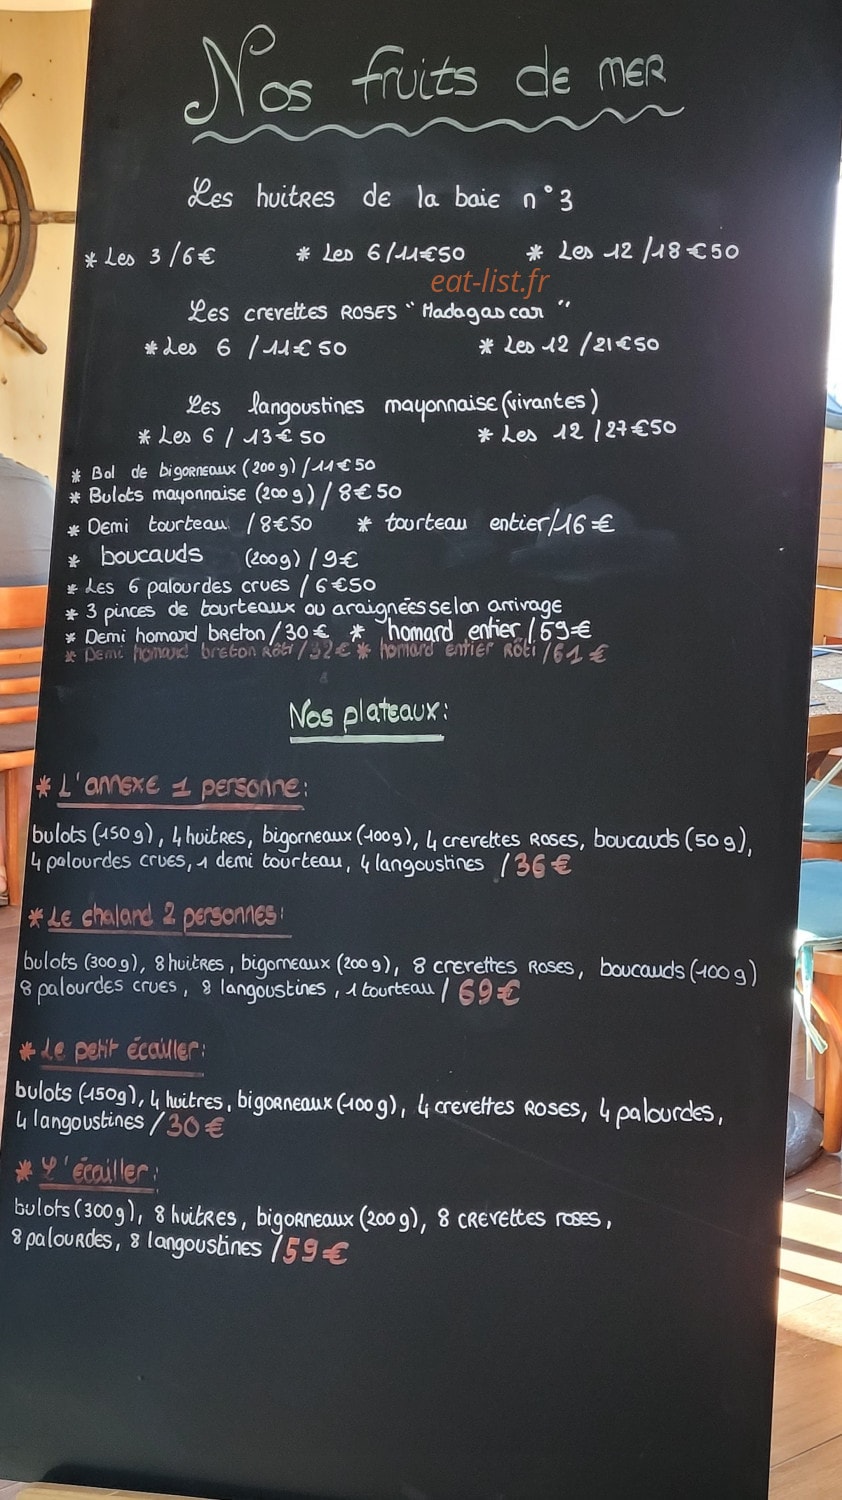 Nos fruits de MER
Les huitres de la baie n°3
* Les 3/6€ * Les 6/11€50 * Les 12/18€50
eat-list.fr
Les crevettes ROSES "Madagascar"
* Les 6 /11€50 * Les 12 /21€50
Les langoustines mayonnaise (vivantes)
* Les 6 / 13€50 * Les 12 /27€50
* Bol de bigorneaux (200g) /11€50
* Bulots mayonnaise (200g) / 8€50
* Demi tourteau /8€50 * tourteau entier/16€
* boucauds (200g) / 9€
* Les 6 palourdes crues / 6€50
* 3 pinces de tourteaux ou araignées selon arrivage
* Demi homard breton / 30€ * homard entier / 59€
* Demi homard breton Rôti / 32€ * homard entier Rôti /61€
Nos plateaux:
* L'annexe 1 personne:
bulots (150g), 4 huîtres, bigorneaux (100g), 4 crevettes Roses, boucauds (50g),
4 palourdes crues, 1 demi tourteau, 4 langoustines / 36€
* Le chaland 2 personnes:
bulots (300g), 8 huîtres, bigorneaux (200g), 8 crevettes Roses, boucauds (100g)
8 palourdes crues, 8 langoustines, 1 tourteau / 69€
* Le petit écailler:
bulots (150g), 4 huitres, bigorneaux (100g), 4 crevettes Roses, 4 palourdes,
4 langoustines / 30€
* L'écailler:
bulots (300g), 8 huîtres, bigorneaux (200g), 8 crevettes roses,
8 palourdes, 8 langoustines / 59€